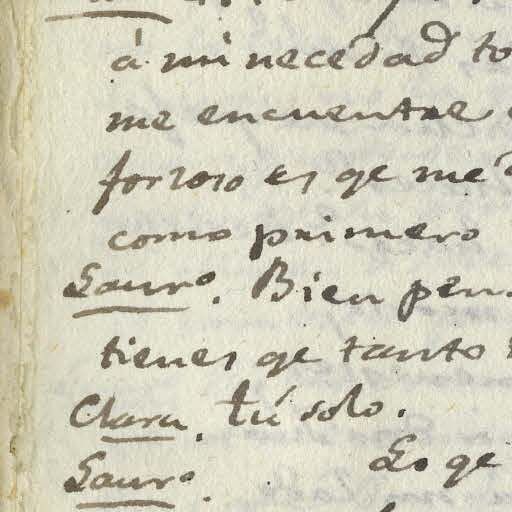 á mi necedad to
me encuentre
forzoso es qe me
como primero
Lauro. Bien pen
tienes qe tanto
Clara. tú solo.
Lauro. Lo qe